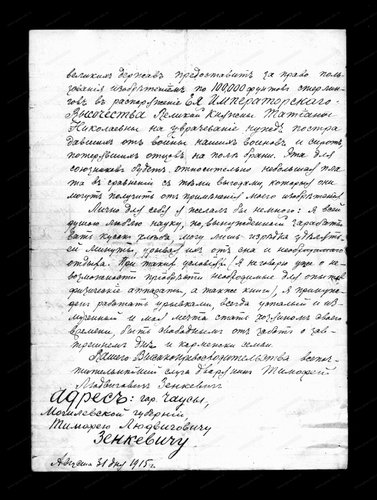 великих держав предоставить за право поль-
зования изобретением по 100000 фунтов стерлин-
гов в распоряжение Ея Императорского
Высочества Великой Княжны Татіаны
Николаевны на уврачевание нужд постра
давших от войны наших воинов и сирот,
потерявших отцов на поле брани. Эта для
союзников будет относительно небольшая пла-
та в сравнении с теми выгодами, которые они
могут получить от применения моего изобретения.
Лично для себя я желал бы немного: я всей
душою люблю науку, но вынужденный зарабаты-
вать кусок хлеба могу лишь изредка уделять
ей минуты, урывая их от сна и необходимого
отдыха. При таких условиях (я не говорю уже о не-
возможности приобрести необходимые для опытов
физические аппараты, а также книги), я принуж-
ден работать урывками, всегда усталый и из-
мученный и моя мечта стать хозяином своего
времени, быть свободным от забот о зав-
трашнем дне и кормежки семьи.
Вашего Высокопревосходительства всепоч-
тительнейший слуга дворянин Тимофей
Людвигович Зенкевич
Адрес: гор. Чаусы,
Могилевской губерніи,
Тимофею Людвиговичу
Зенкевичу
31 дня 1915 г.